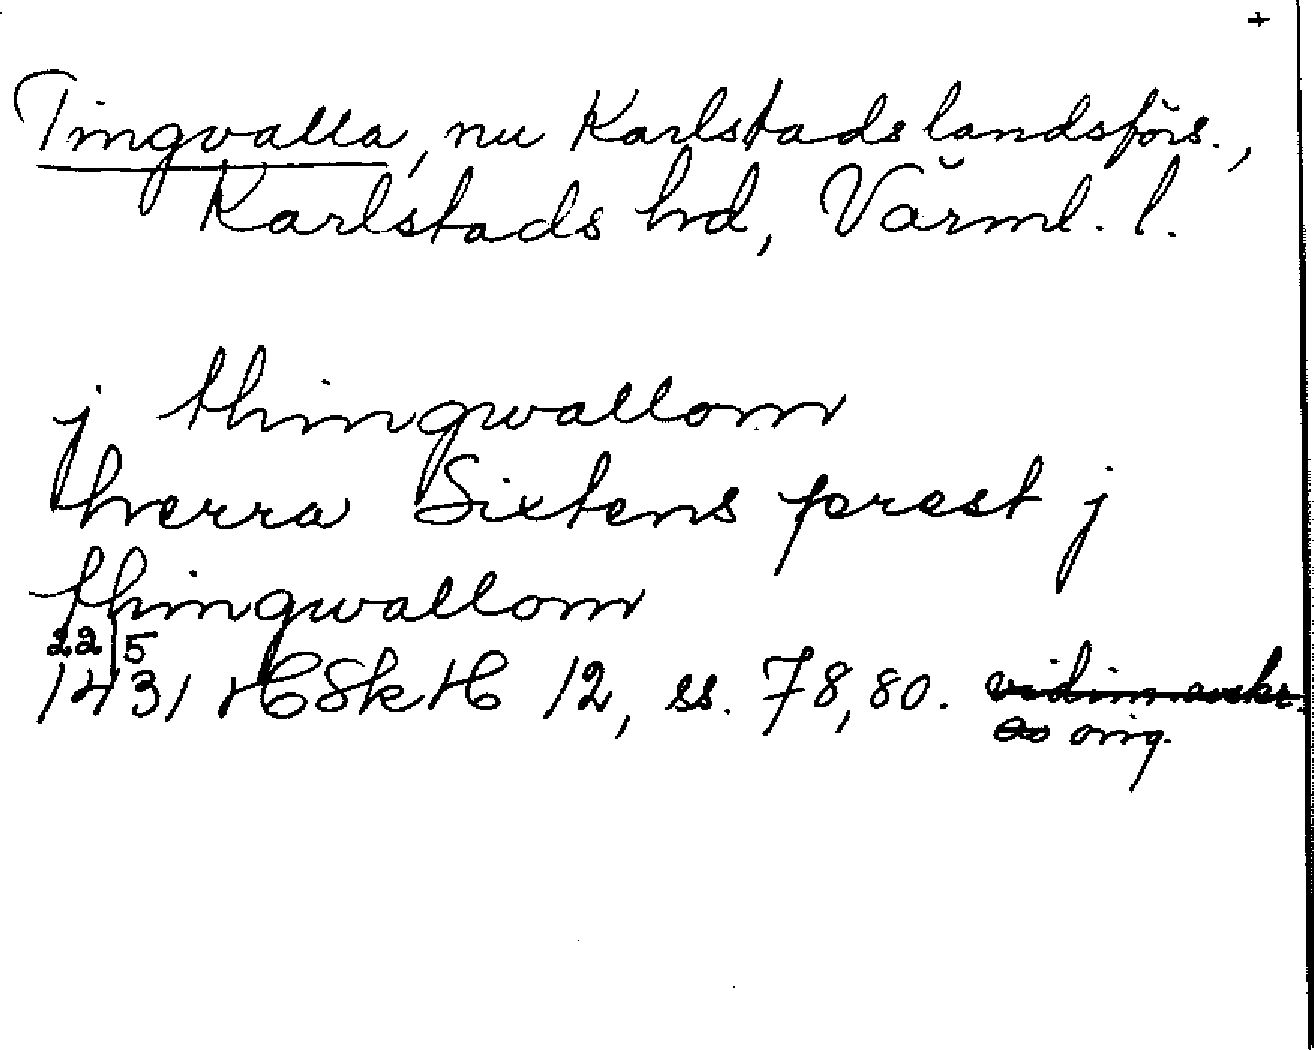 +
Tingvalla, nu Karlstads landsförs.,
Karlstads hd, Värml. l.
j thingwallom
hwerra Sixtens prest j
thingwallom
22/5
1431 HSkH 12, ss. 78, 80.
orig.